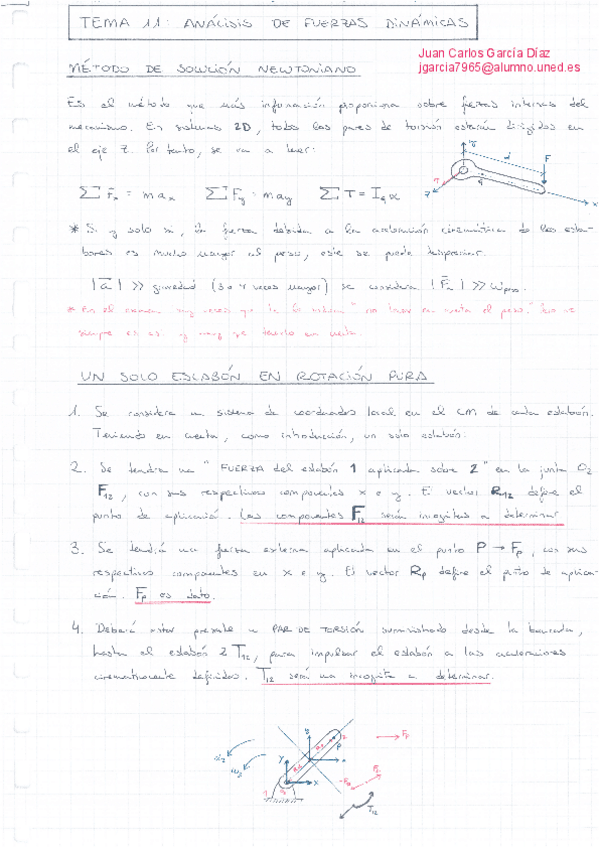 TEMA 11: ANÁLISIS DE FUERZAS DINÁMICAS
Juan Carlos García Díaz
jgarcia7965@alumno.uned.es
MÉTODO DE SOLUCIÓN NEWTONIANO
Es el método que más información proporciona sobre fuerzas internas del
mecanismo. En sistemas 2D, todos los pares de torsión estarán dirigidos en
el eje z. Por tanto, se va a tener:
Σ Fx = m ax Σ Fy = m ay Σ T = Ig α
* Si y solo si, la fuerza debida a la aceleración cinemática de los esla-
bones es mucho mayor al peso, este se puede despreciar.
|a| >> gravedad (3 o 4 veces mayor) se considera |F| >> Wpeso.
* En el examen muy veces que te lo indica "no tener en cuenta el peso".
siempre es así y hay que tenerlo en cuenta.
UN SOLO ESLABÓN EN ROTACIÓN PURA
1. Se considera un sistema de coordenadas local en el CM de cada eslabón.
Teniendo en cuenta, como introducción, un solo eslabón:
2. Se tendrá una "FUERZA del eslabón 1 aplicada sobre 2" en la junta O2
F12, con sus respectivas componentes x e y. El vector R12 define el
punto de aplicación. Las componentes F12 serán incógnitas a determinar
3. Se tendrá una fuerza externa aplicada en el punto P → Fp, con sus
respectivas componentes en x e y. El vector Rp define el pto de aplica-
ción. Fp es dato.
4. Deberá estar presente un PAR DE TORSIÓN suministrado desde la bancada,
hasta el eslabón 2 T12, para impulsar el eslabón a las aceleraciones
cinemáticamente definidas. T12 será una incógnita a determinar.
d F
x
y
x
P
2
Fp
T12